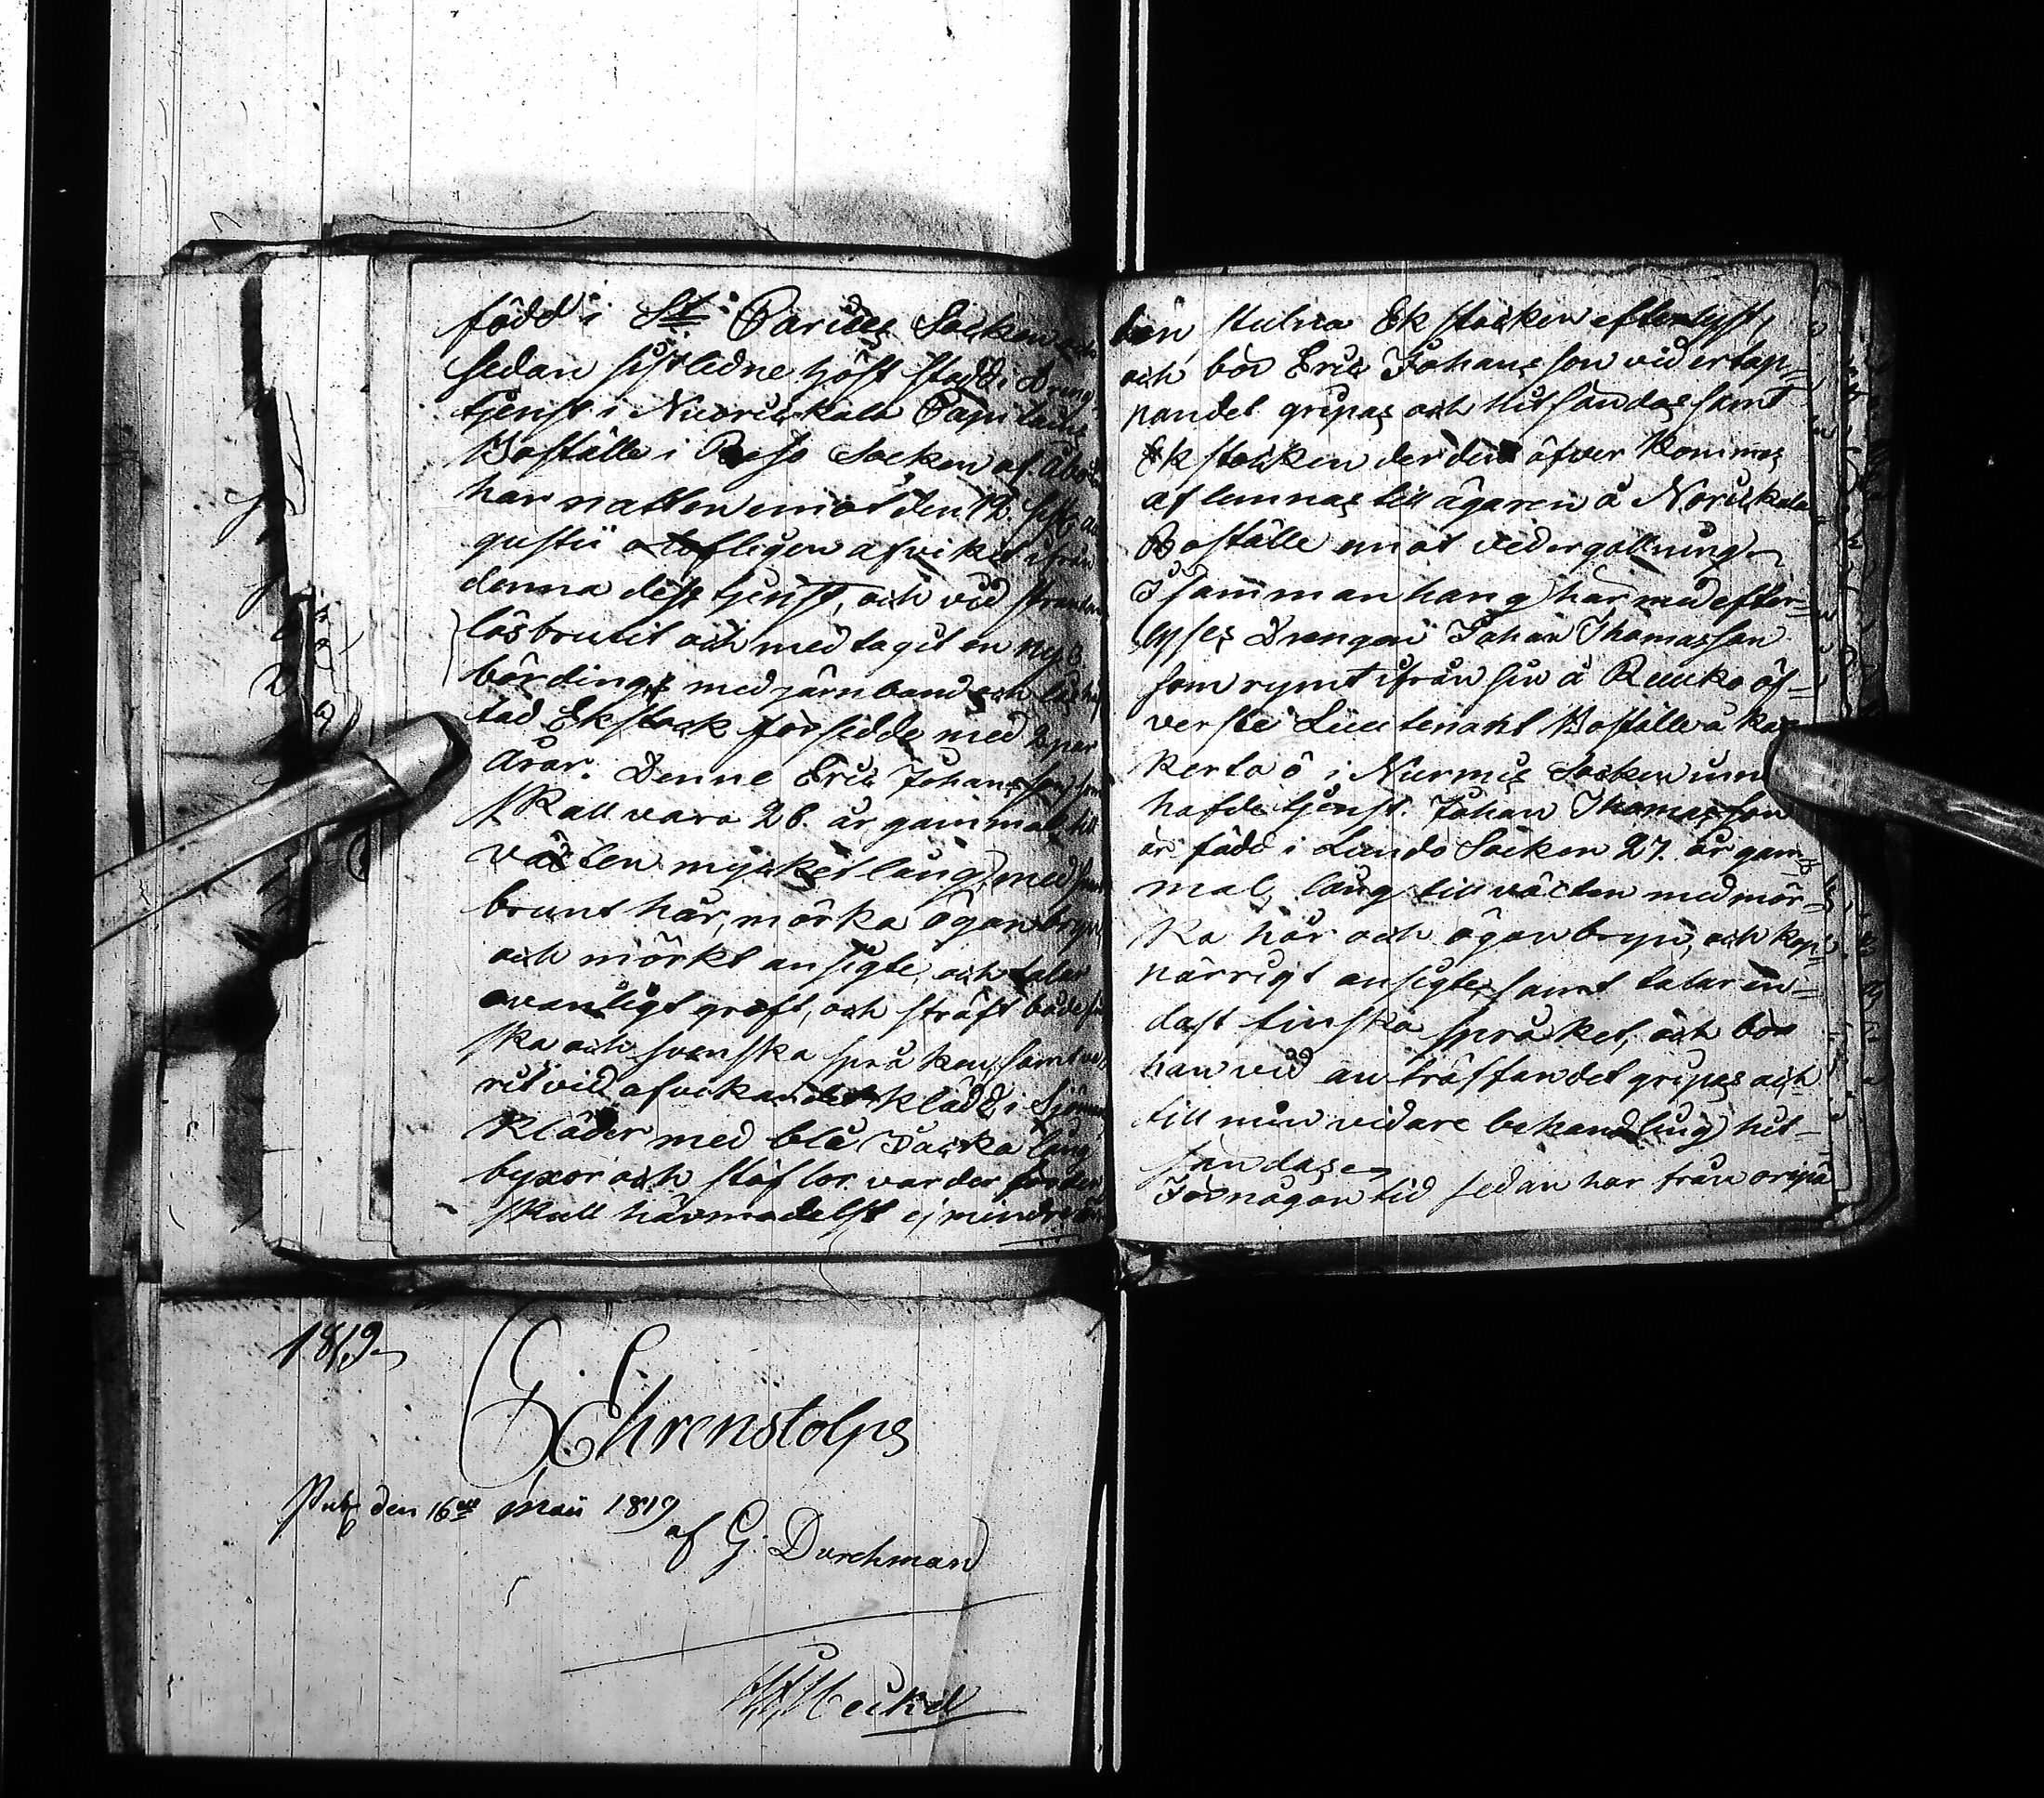 född i St. Parilles Socken och
sedan sistledne höst stadd i Dreng
tjenst i Nuoriskala Capitains
Boställe i Reso Socken af Åbo
har natten emot den 12. sistl. au
gustii olofligen afvikit ifrån
denna dess tjenst, och vid stranden
lösbrutit och med tagit en ny
bördings med järnband och
tad Ekstock försedde med 2 par
årar. Denne Eric Johansson som
skall vara 26. år gammal, till
växten mycket lång, med
brunt hår, mörka ögonbryn,
och mörkt ansigte, och talar
ovanligt groft, och sträft både fin
ska och svenska språken, samt va
rit vid afvikandet klädd i Sjömans
kläder med blå Jacka lång
byxor och stöflor varder
skall härmedelst ej mindre
den stulna Ekstocken efterlyst,
och bör Eric Johansson vid ertap=
pandet gripas och hit sändas samt
Ekstocken der den öfver kommes
aflemnas till ägaren å Noriskala
Boställe emot vedergällning.
I sammanhang härmed efter=
lyses Drengen Johan Thomasson
som rymt ifrån sin å Rauko öf=
verste Lieutenant Boställe å
kerta ö i Nurmis Socken inne
hafde tjenst. Johan Thomasson
är född i Lundo Socken 27. år gam=
mal, lång till växten med mör=
ka hår och ögonbryn, och kop=
pärrigt ansigte, samt talar en=
dast finska språket, och bör
han vid anträffandet gripas och
till min vidare behandling hit=
sändas.
För någon tid sedan har från
1819
G. Ehrenstolpe
Publ. den 16de Maii 1819
af G. Durchman